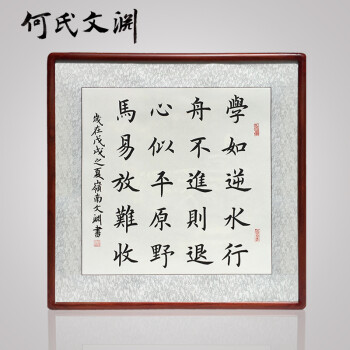 何氏文渊
學如逆水行
舟不進則退
心似平原野
馬易放難收
歲在戊戌之夏嶺南文渊書